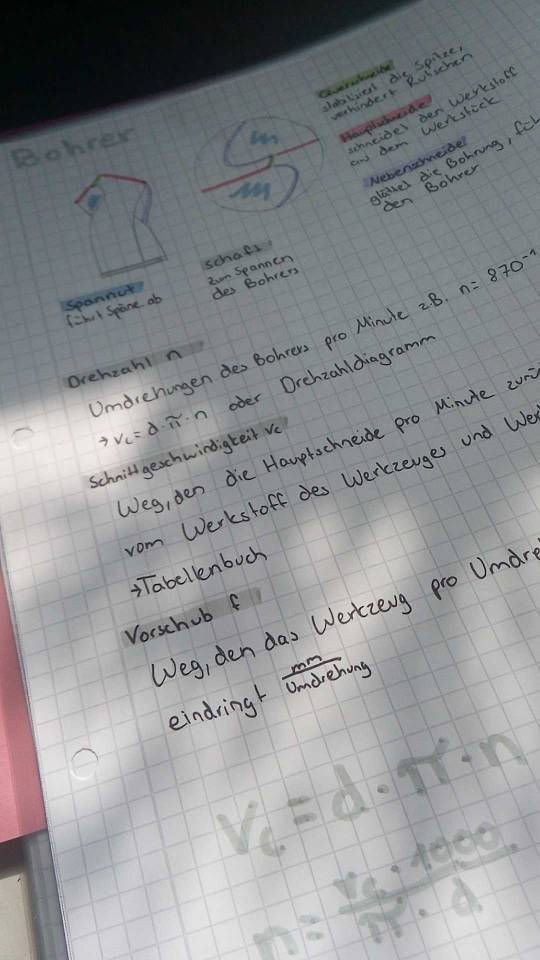 Bohrer
Querschneide
stabilisiert die Spitze,
verhindert Rutschen
Hauptschneide
schneidet den Werkstoff
aus dem Werkstück
Nebenschneide
glättet die Bohrung,
den Bohrer
Spannut
führt Späne ab
Schaft
zum Spannen
des Bohrers
Drehzahl n
Umdrehungen des Bohrers pro Minute z.B. n = 870⁻¹
→ Vc = d · π · n oder Drehzahldiagramm
Schnittgeschwindigkeit Vc
Weg, den die Hauptschneide pro Minute
vom Werkstoff des Werkzeuges und
→ Tabellenbuch
Vorschub f
Weg, den das Werkzeug pro
eindringt mm/Umdrehung
Vc = d · π · n
n = Vc · 1000 / π · d